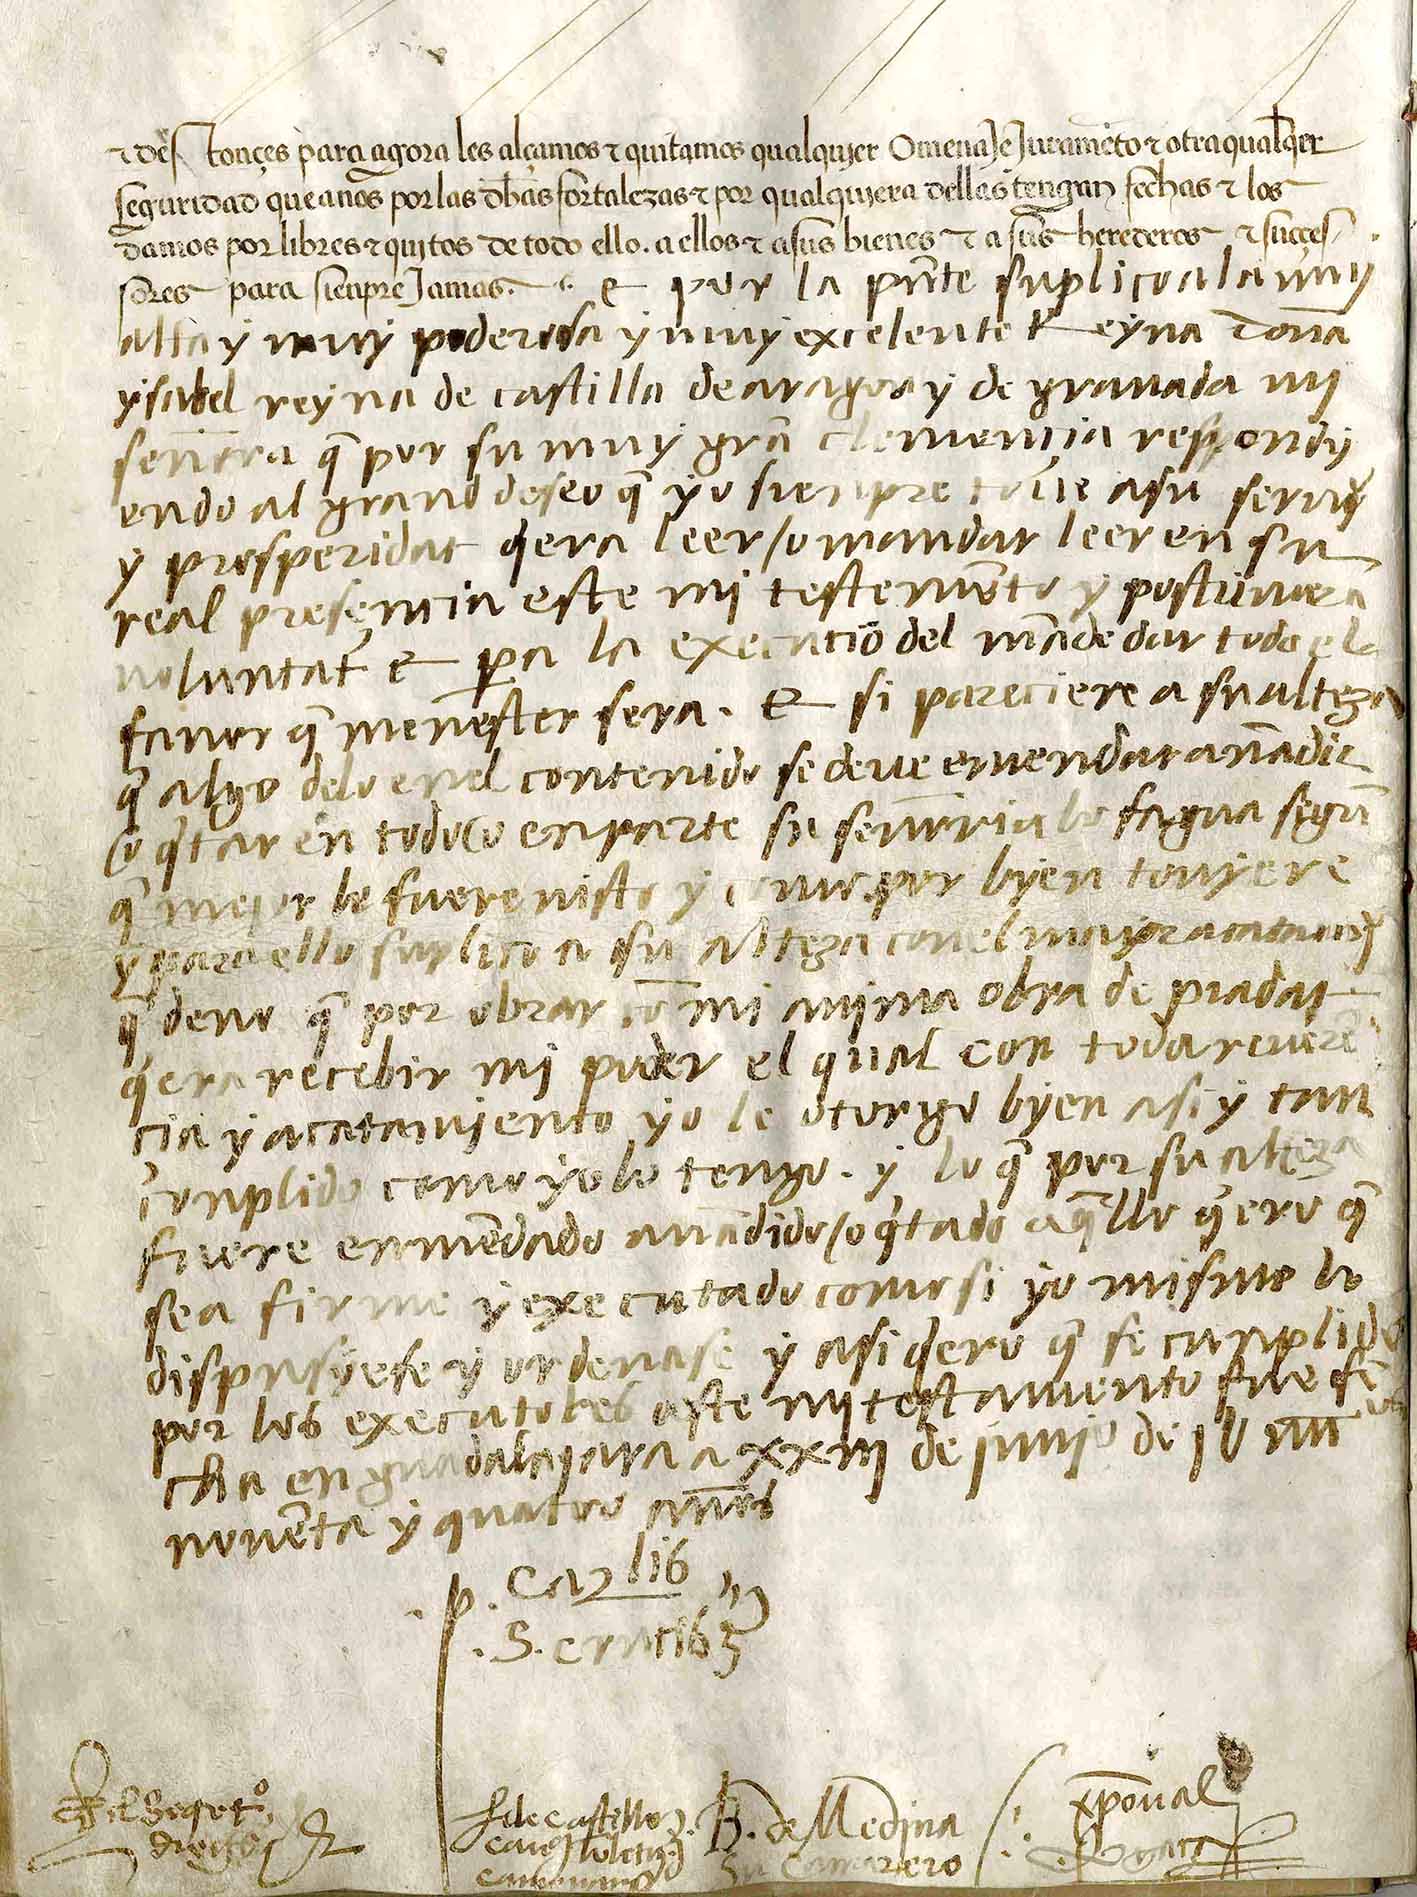 τ des tonçes para agora les alçamos τ quitamos qualqujer Omenaje Juramēto τ otra qualqer
seguridad que a nos por las dhas fortalezas τ por qualqujera dellas tengan fechas τ los
damos por libres τ qujtos de todo ello. a ellos τ a sus bienes τ a sus herederos τ suçes
sores para sienpre Jamas. e por la pnte suplico a la muy
alta y muy poderosa y muy excelente Reyna dona
ysabel reyna de castilla de aragon y de granada mj
sennora q̄ por su muy grā clemencia respondy
endo al grand deseo q̄ yo sienpre toue a su seruy
y prosperidat qera leer / o mandar leer en su
real presençia este mj testemēto y postumera
voluntat e pa la execuciō del māde dar todo el
fauor q̄ menester sera. E si pareciere a su alteza
q̄ algo de lo en el contenido se deue emendar anadir
/o qtar en todo /o en parte su sennoria lo fagua segū
q̄ mejor lo fuere uisto y como por byen toujere
y para ello suplico a su alteza con el mayor
q̄ deuo q̄ por obrar cō mi anjma obra de piadat
qera recebir mj poder el qual con toda reuerē
cia y acatamjento yo le otorgo byen asi y tan
cunplido como yo lo tengo. y lo q̄ por su alteza
fuere enmēdado anadido /o qtado aq̄llo qero q̄
sea firme y executado como si yo mismo lo
dispusyese y ordenase y asi qero q̄ se cunplido
por los executores este mj testamento fue fe
cha en guadalajara a xxiij de junjo de
nouēta y quatro annos
.P. Carlis
.S. crucis
diego
de castillo
B. de Medina
su camarero
xpoual